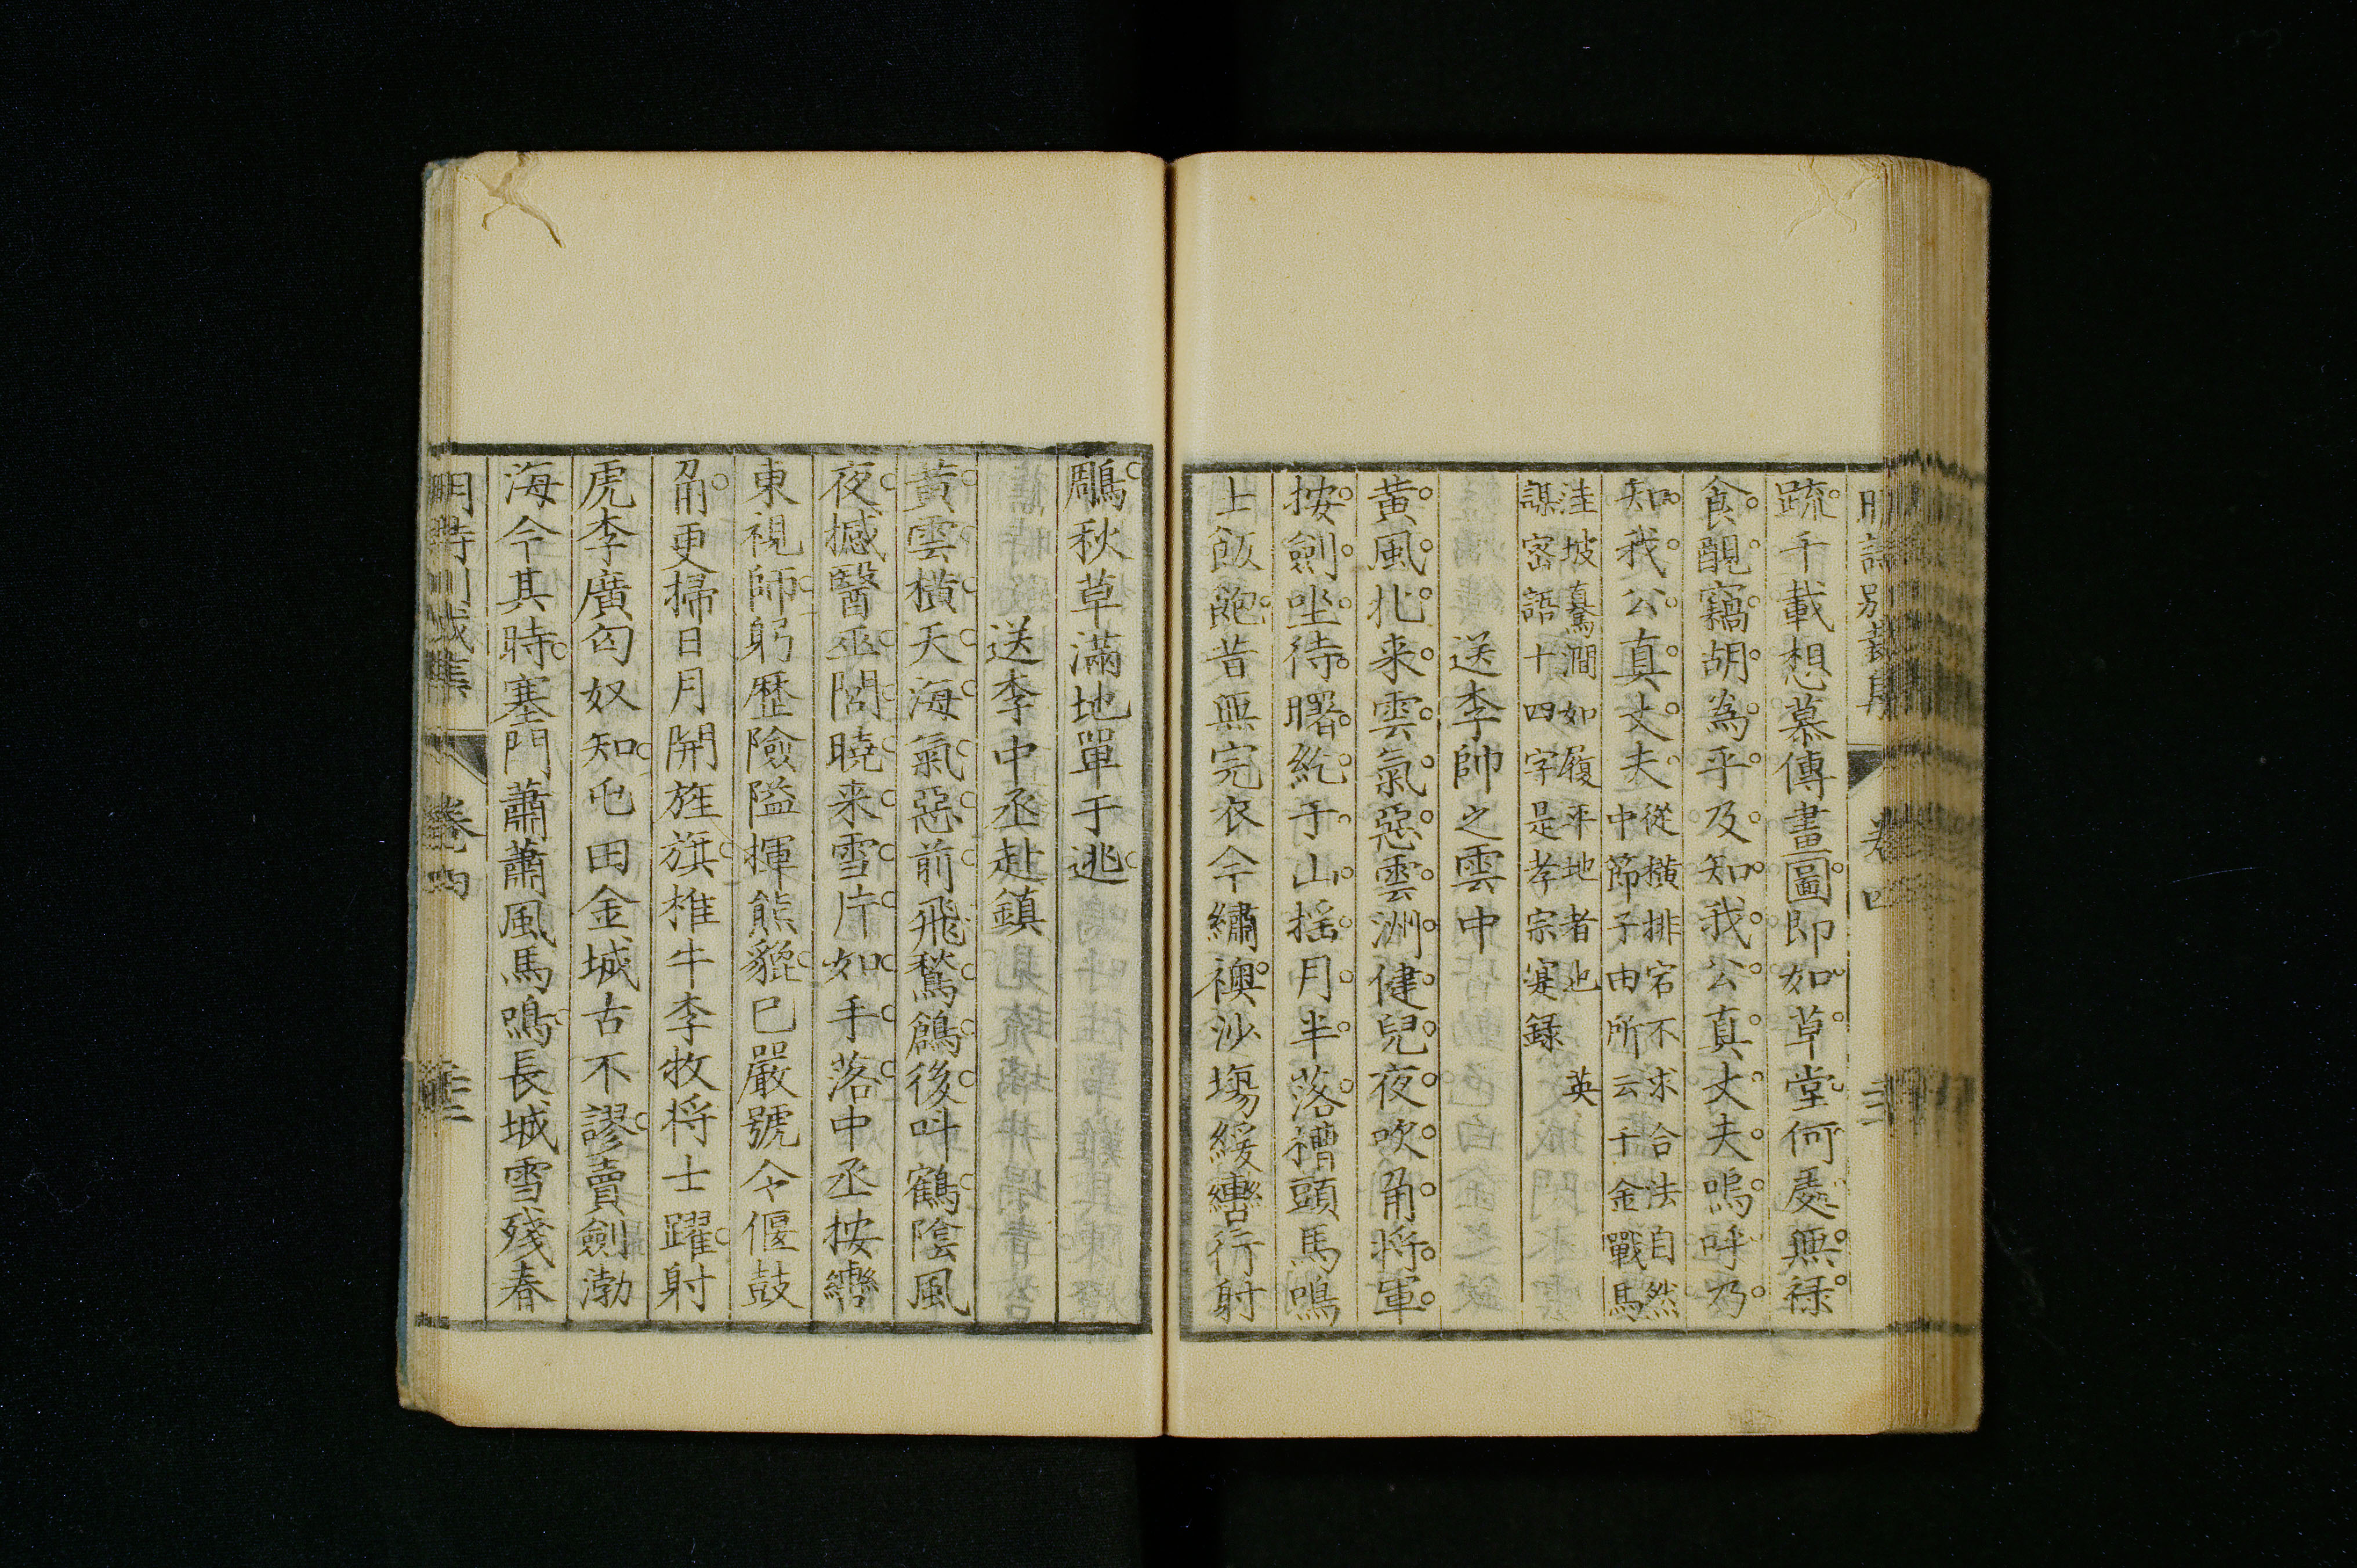 明詩別裁集 卷四 三
疏千載想慕傳畫圖即如草堂何處無祿
食覩竊胡為乎及知我公真丈夫嗚呼乃
知我公真丈夫
從橫排宕不求合法自然
中節子由所云千金戰馬
注坡驀澗如履平地者也 英
謀密語十四字是孝宗寔録
送李帥之雲中
黃風北来雲氣惡雲洲健兒夜吹角將軍
按劍坐待曙紇于山搖月半落槽頭馬鳴
士飯飽昔無完衣今繡襖沙塲緩轡行射
鵰秋草滿地單于逃
送李中丞赴鎮
黃雲橫天海氣惡前飛鶖鶬後叫鶴陰風
夜撼醫巫閭曉来雪片如手落中丞按轡
東視師躬歷險隘揮熊貔已嚴號令偃鼓
角更掃日月開旌旗椎牛李牧将士躍射
虎李廣匈奴知屯田金城古不謬賣劍渤
海今其時塞門蕭蕭風馬鳴長城雪殘春
卷四